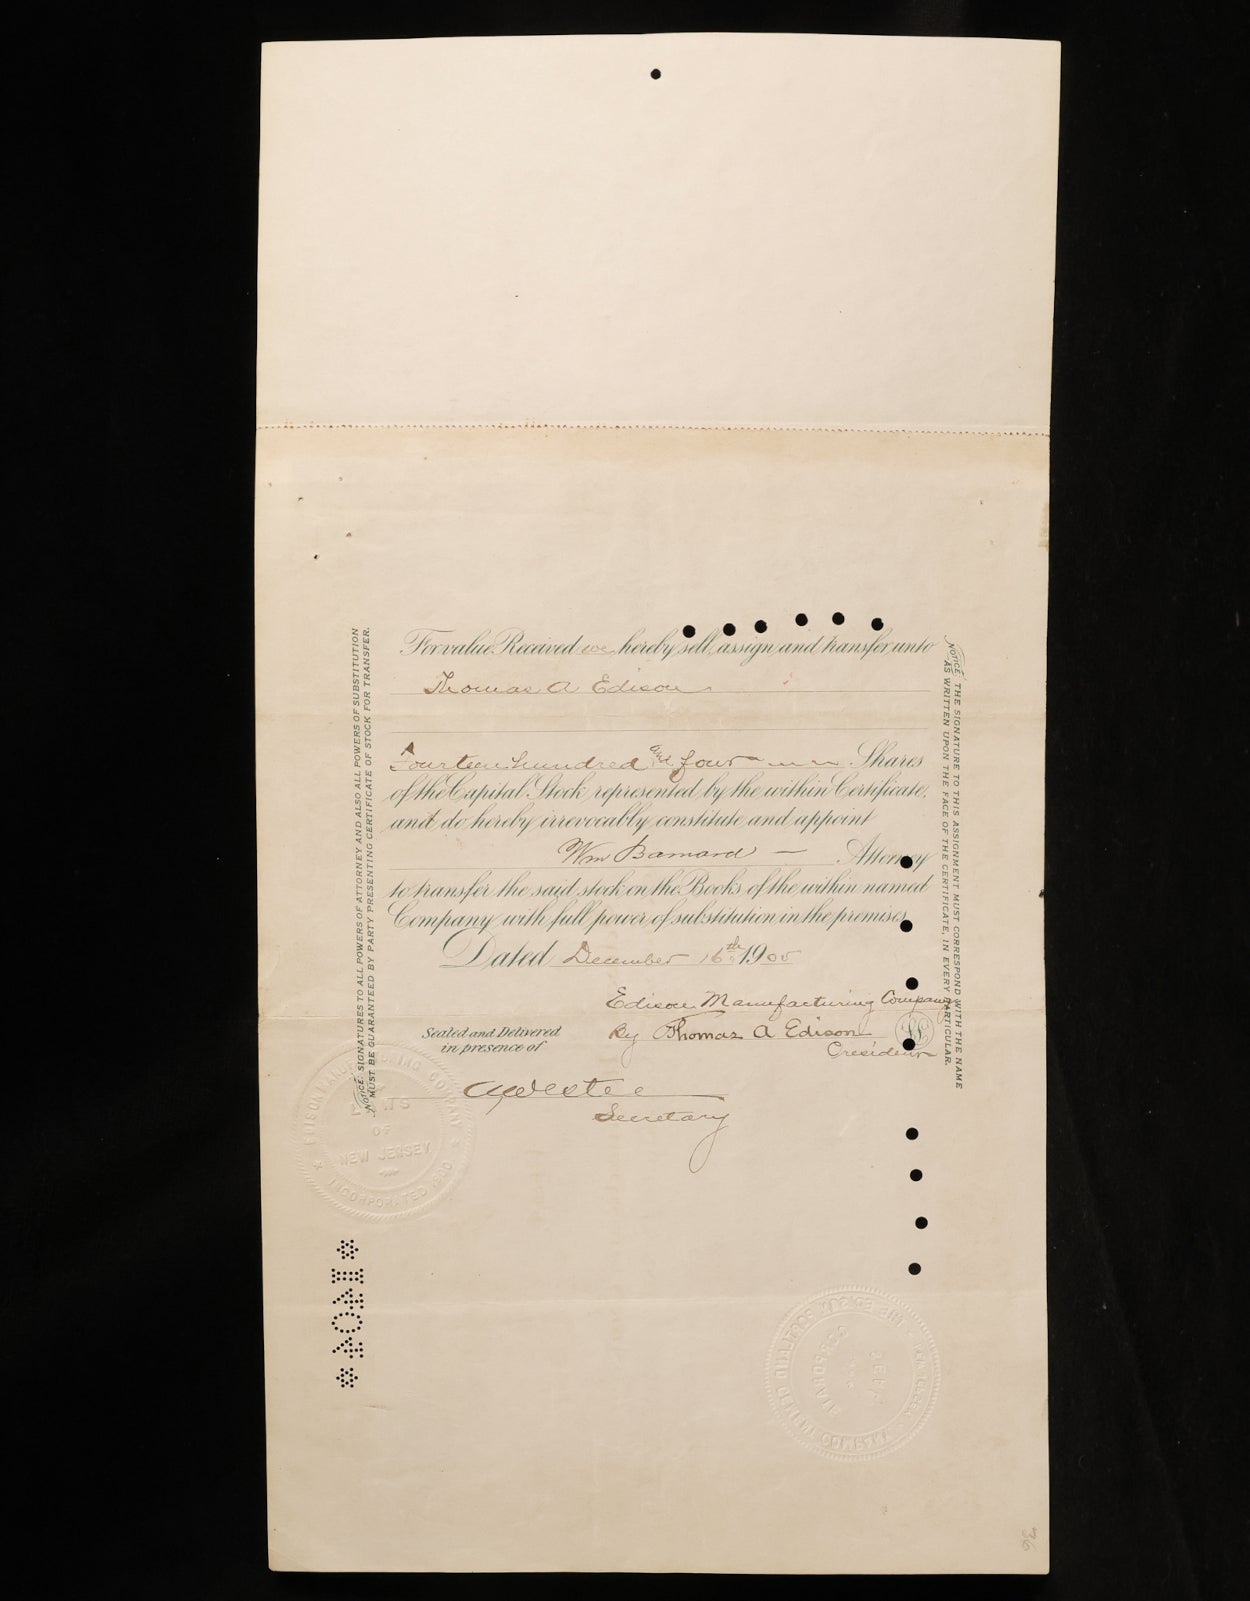 For value Received we hereby sell, assign, and transfer unto
Thomas A Edison
Fourteen hundred and four Shares
of the Capital Stock represented by the within Certificate,
and do hereby irrevocably constitute and appoint
Wm Barnard — Attorney
to transfer the said stock on the Books of the within named
Company with full power of substitution in the premises.
Dated December 16th 1900
Edison Manufacturing Company
By Thomas A Edison
President
Sealed and Delivered
in presence of
Secretary
NOTICE: SIGNATURES TO ALL POWERS OF ATTORNEY AND ALSO ALL POWERS OF SUBSTITUTION
MUST BE GUARANTEED BY PARTY PRESENTING CERTIFICATE OF STOCK FOR TRANSFER.
NOTICE: THE SIGNATURE TO THIS ASSIGNMENT MUST CORRESPOND WITH THE NAME
AS WRITTEN UPON THE FACE OF THE CERTIFICATE, IN EVERY PARTICULAR.
EDISON MANUFACTURING COMPANY
OF
NEW JERSEY
INCORPORATED 1900
* 1404 *
36